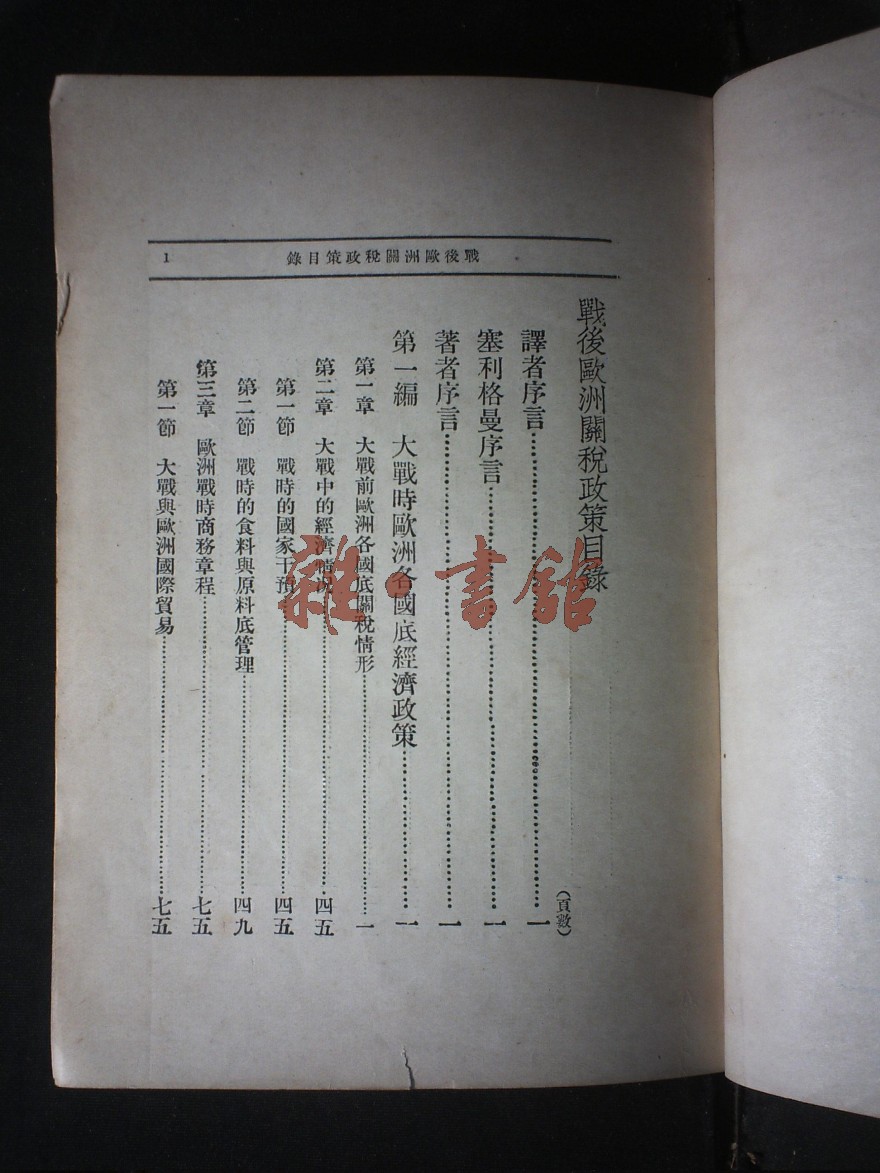 戰後歐洲關稅政策目錄
1
戰後歐洲關稅政策目錄
(頁數)
譯者序言……一
塞利格曼序言……一
著者序言……一
第一編 大戰時歐洲各國底經濟政策……一
第一章 大戰前歐洲各國底關稅情形……一
第二章 大戰中的經濟情況……四五
第一節 戰時的國家干預……四五
第二節 戰時的食料與原料底管理……四九
第三章 歐洲戰時商務章程……七五
第一節 大戰與歐洲國際貿易……七五
雜·書館